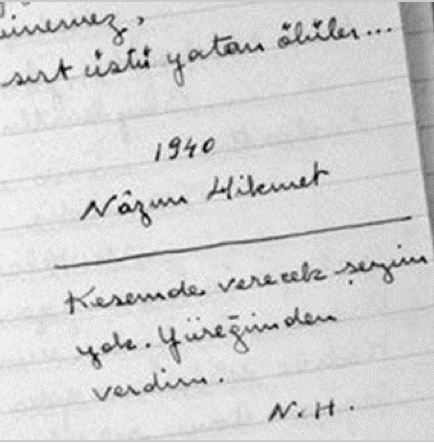 binemez,
sırt üstü yatan ölüler...
1940
Nâzım Hikmet
Kesemde verecek şeyim
yok. Yüreğimden
verdim.
N.H.